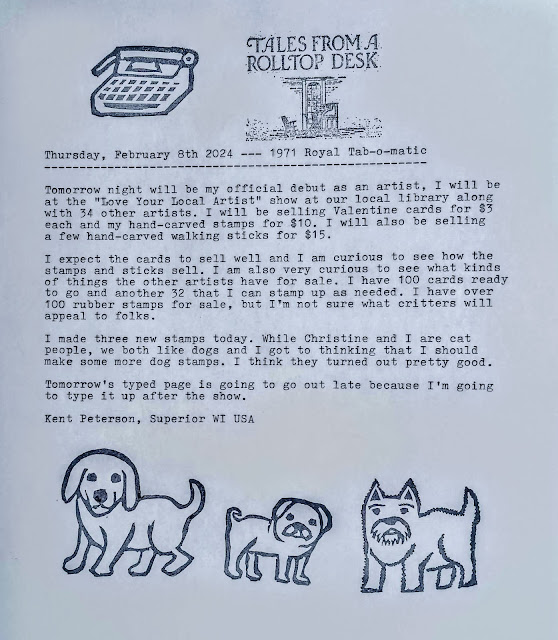 TALES FROM A
ROLLTOP DESK
Thursday, February 8th 2024 --- 1971 Royal Tab-o-matic
Tomorrow night will be my official debut as an artist, I will be
at the "Love Your Local Artist" show at our local library along
with 34 other artists. I will be selling Valentine cards for $3
each and my hand-carved stamps for $10. I will also be selling
a few hand-carved walking sticks for $15.
I expect the cards to sell well and I am curious to see how the
stamps and sticks sell. I am also very curious to see what kinds
of things the other artists have for sale. I have 100 cards ready
to go and another 32 that I can stamp up as needed. I have over
100 rubber stamps for sale, but I'm not sure what critters will
appeal to folks.
I made three new stamps today. While Christine and I are cat
people, we both like dogs and I got to thinking that I should
make some more dog stamps. I think they turned out pretty good.
Tomorrow's typed page is going to go out late because I'm going
to type it up after the show.
Kent Peterson, Superior WI USA